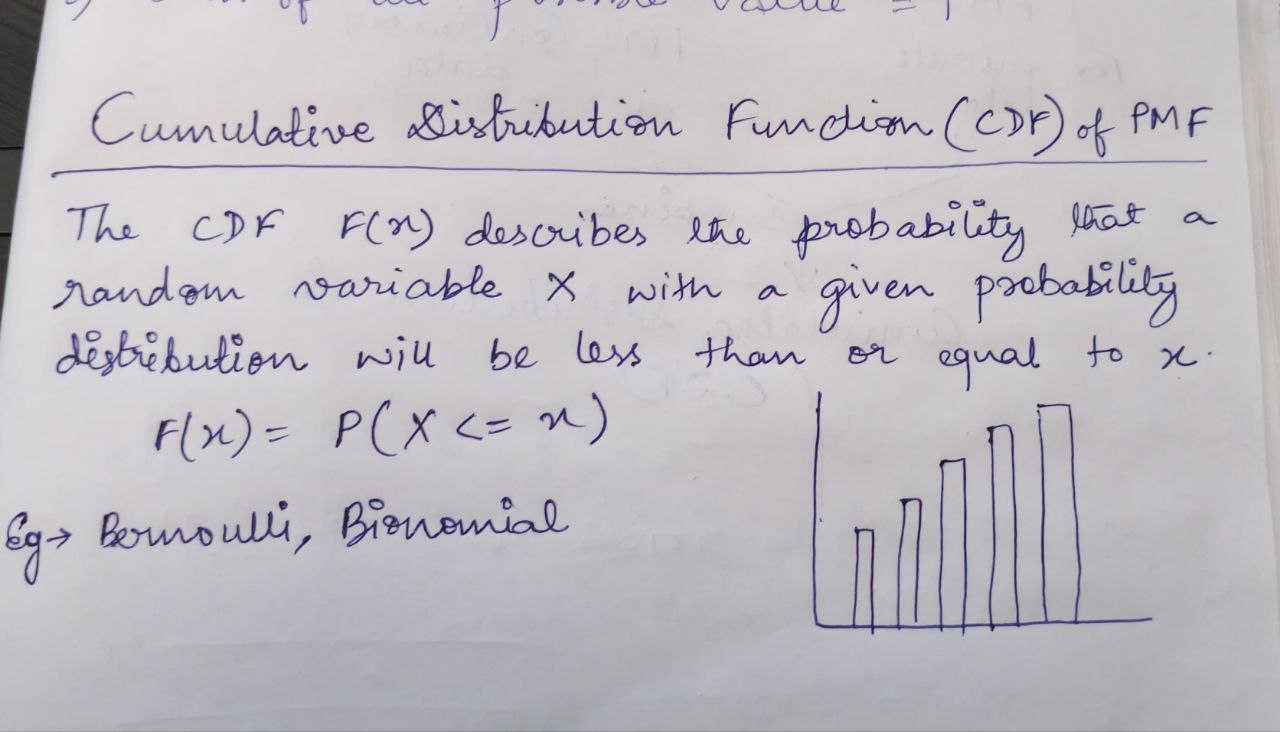 of all possible value = 1
Cumulative Distribution Function (CDF) of PMF
The CDF F(x) describes the probability that a
random variable X with a given probability
distribution will be less than or equal to x.
F(x) = P(X <= x)
Eg → Bernoulli, Bionomial